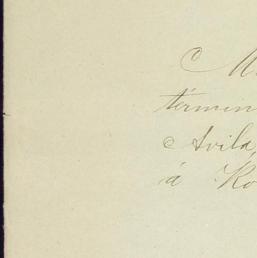 M
términ
Avila,
á Ro